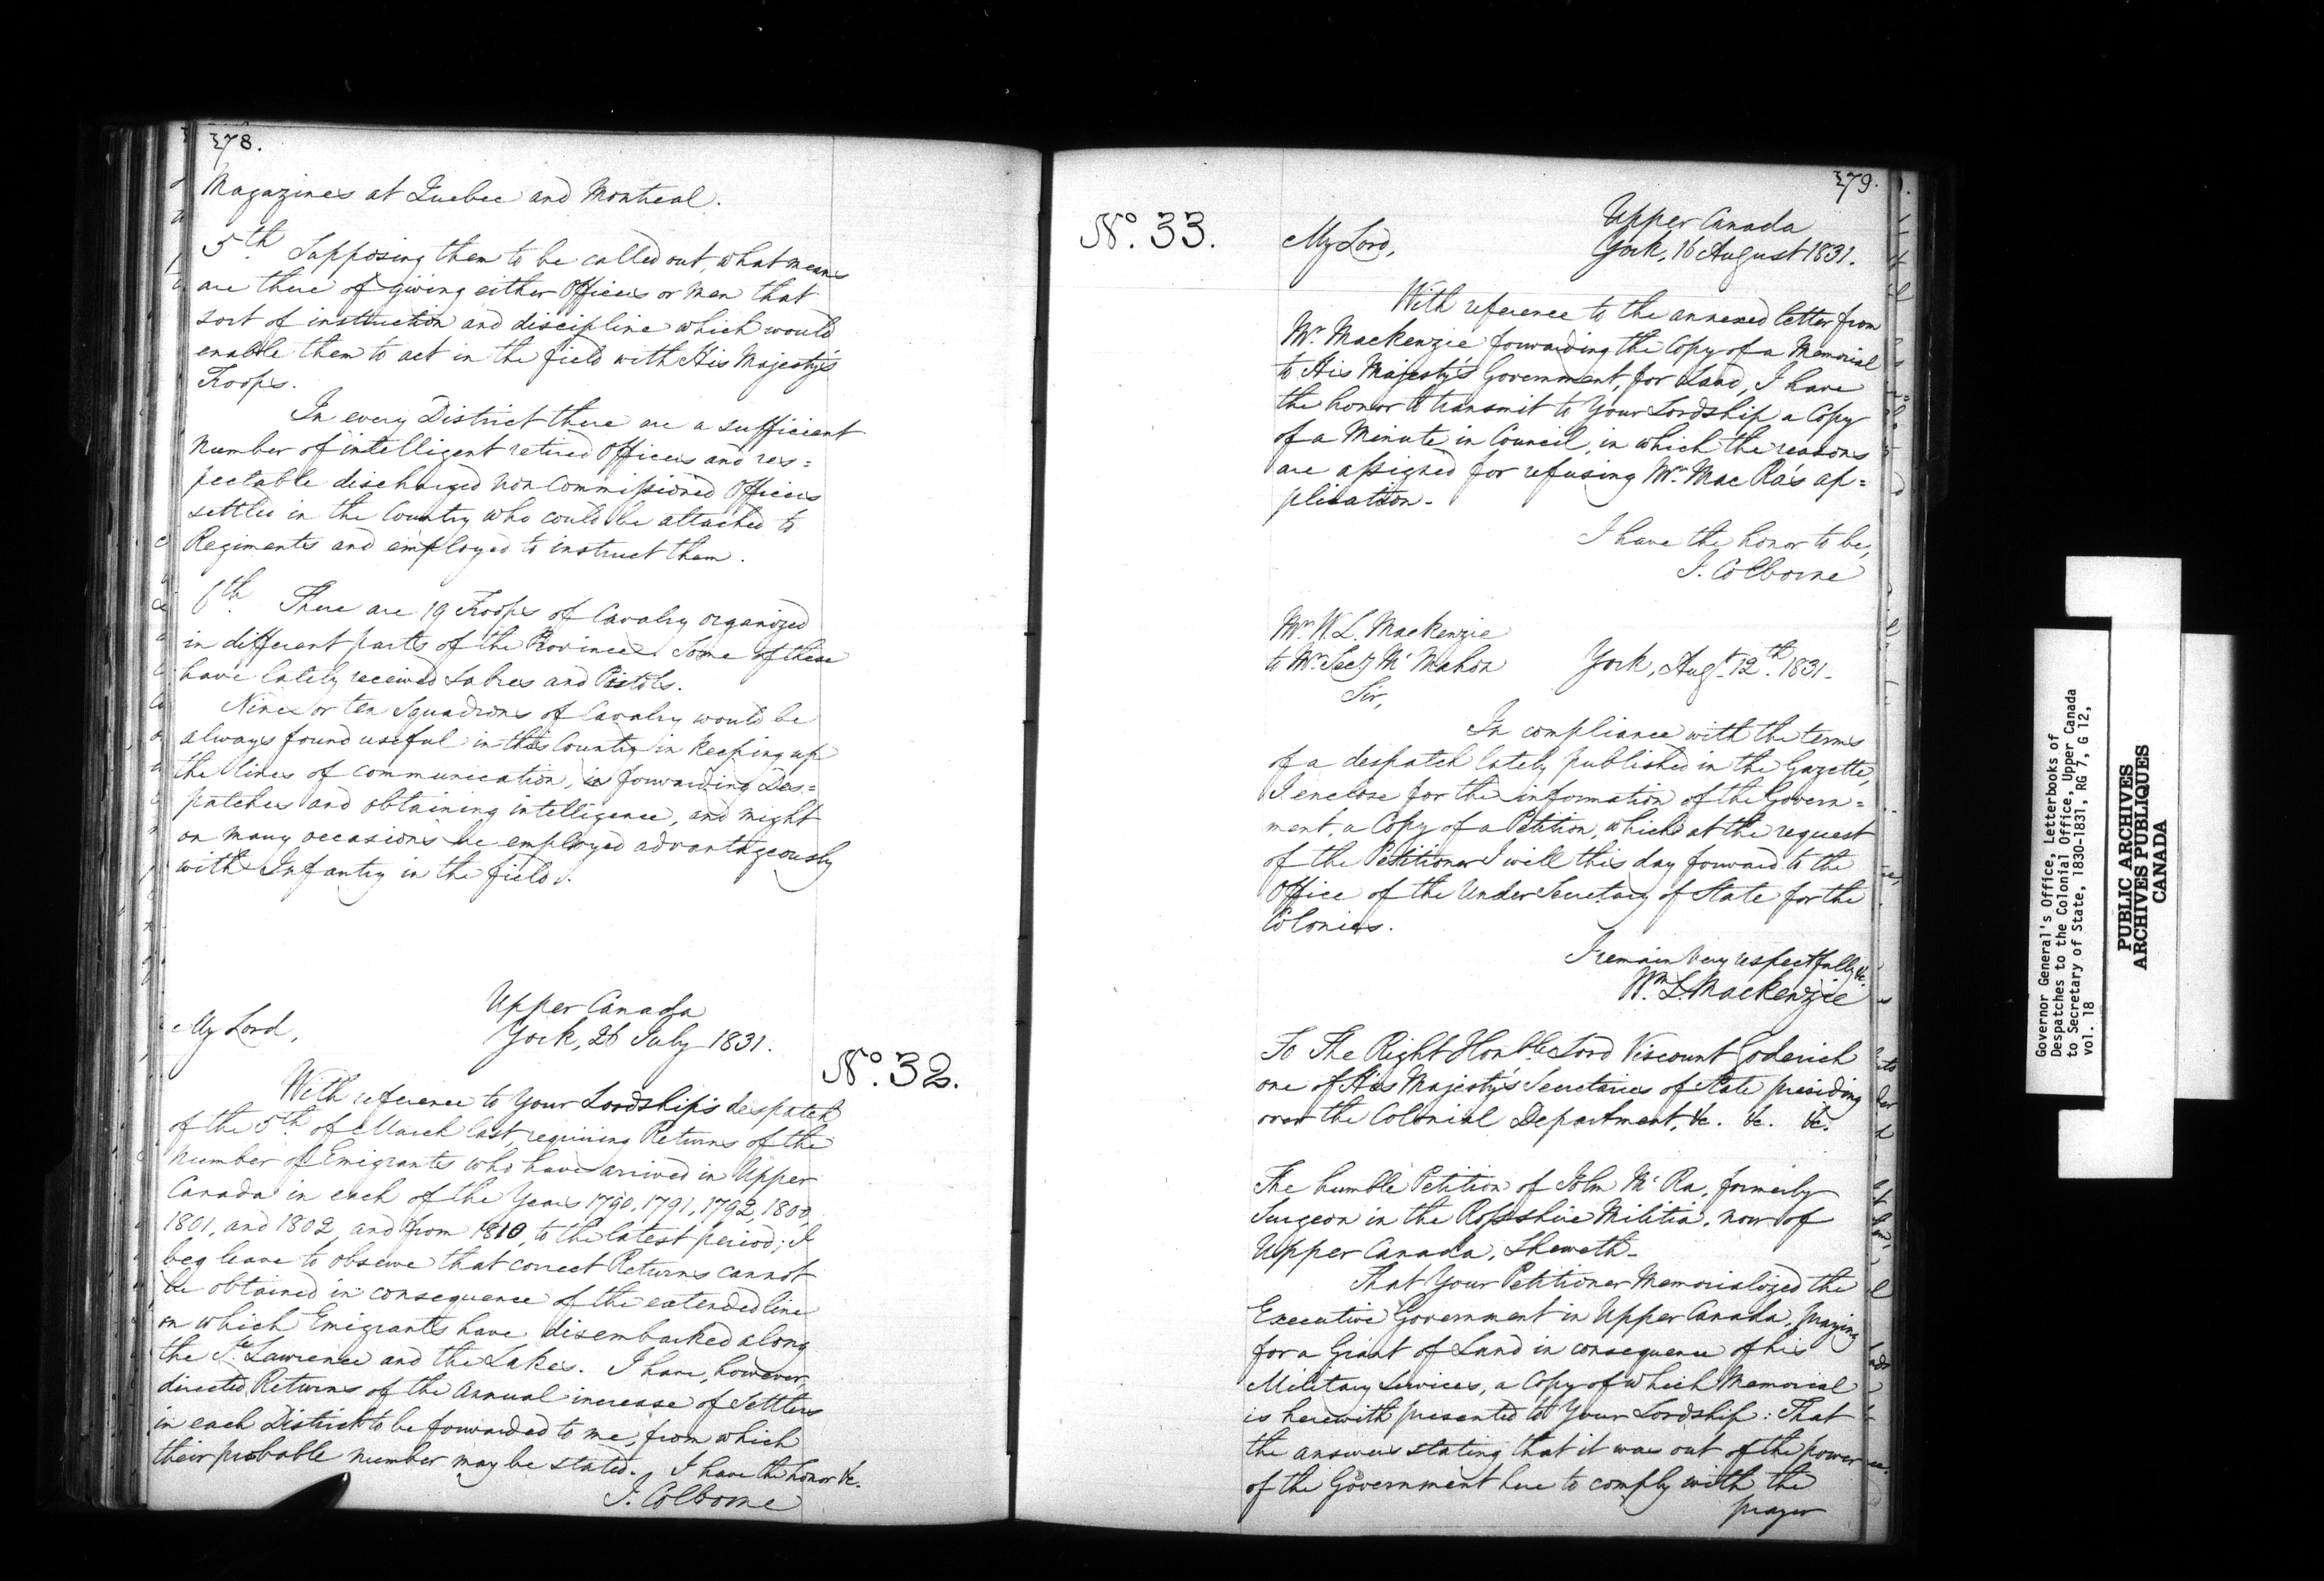 378.
Magazines at Quebec and Montreal.
5th Supposing them to be called out, what means
are there of giving either Officers or Men that
sort of instruction and discipline which would
enable them to act in the field with His Majesty's
Troops.
In every District there are a sufficient
number of intelligent retired Officers and res=
pectable discharged Non Commissioned Officers
settled in the Country who could be attached to
Regiments and employed to instruct them.
6th There are 19 Troops of Cavalry organized
in different parts of the Province. Some of these
have lately received Sabres and Pistols.
Nine or ten Squadrons of Cavalry would be
always found useful in this Country in keeping up
the lines of communication, in forwarding Des=
patches and obtaining intelligence, and might
on many occasions be employed advantageously
with Infantry in the field.
Upper Canada
My Lord, York, 26 July 1831.
No. 32.
With reference to Your Lordship's despatch
of the 5th of March last, requiring Returns of the
number of Emigrants who have arrived in Upper
Canada in each of the Years 1790, 1791, 1792, 1800,
1801, and 1802, and from 1810, to the latest period; I
beg leave to observe that correct Returns cannot
be obtained in consequence of the extended line
on which Emigrants have disembarked along
the St. Lawrence and the Lakes. I have, however,
directed Returns of the Annual increase of Settlers
in each District to be forwarded to me, from which
their probable number may be stated. I have the honor &c.
J. Colborne
379.
No. 33.
Upper Canada
My Lord, York, 16 August 1831.
With reference to the annexed letter from
Mr. Mackenzie forwarding the Copy of a Memorial
to His Majesty's Government, for Land, I have
the honor to transmit to Your Lordship a Copy
of a Minute in Council, in which the reasons
are assigned for refusing Mr. Mac Ra's ap=
plication.
I have the honor to be,
J. Colborne
Mr. W. L. Mackenzie
to Mr. Secy Mc Mahon York, Augt. 12th. 1831.
Sir,
In compliance with the terms
of a despatch lately published in the Gazette,
I enclose for the information of the Govern=
ment, a Copy of a Petition, which at the request
of the Petitioner I will this day forward to the
Office of the Under Secretary of State for the
Colonies.
I remain very respectfully &c.
Wm. L. Mackenzie
To The Right Honble. Lord Viscount Goderich
one of His Majesty's Secretaries of State presiding
over the Colonial Department, &c. &c. &c.
The humble Petition of John Mc Ra, formerly
Surgeon in the Rossshire Militia, now of
Upper Canada, Sheweth.
That Your Petitioner Memorialized the
Executive Government in Upper Canada, praying
for a Grant of Land in consequence of his
Military Services, a Copy of which Memorial
is herewith presented to Your Lordship: That
the answer stating that it was out of the power
of the Government here to comply with the
prayer
Governor General's Office, Letterbooks of
Despatches to the Colonial Office, Upper Canada
to Secretary of State, 1830-1831, RG 7, G 12,
vol. 18
PUBLIC ARCHIVES
ARCHIVES PUBLIQUES
CANADA